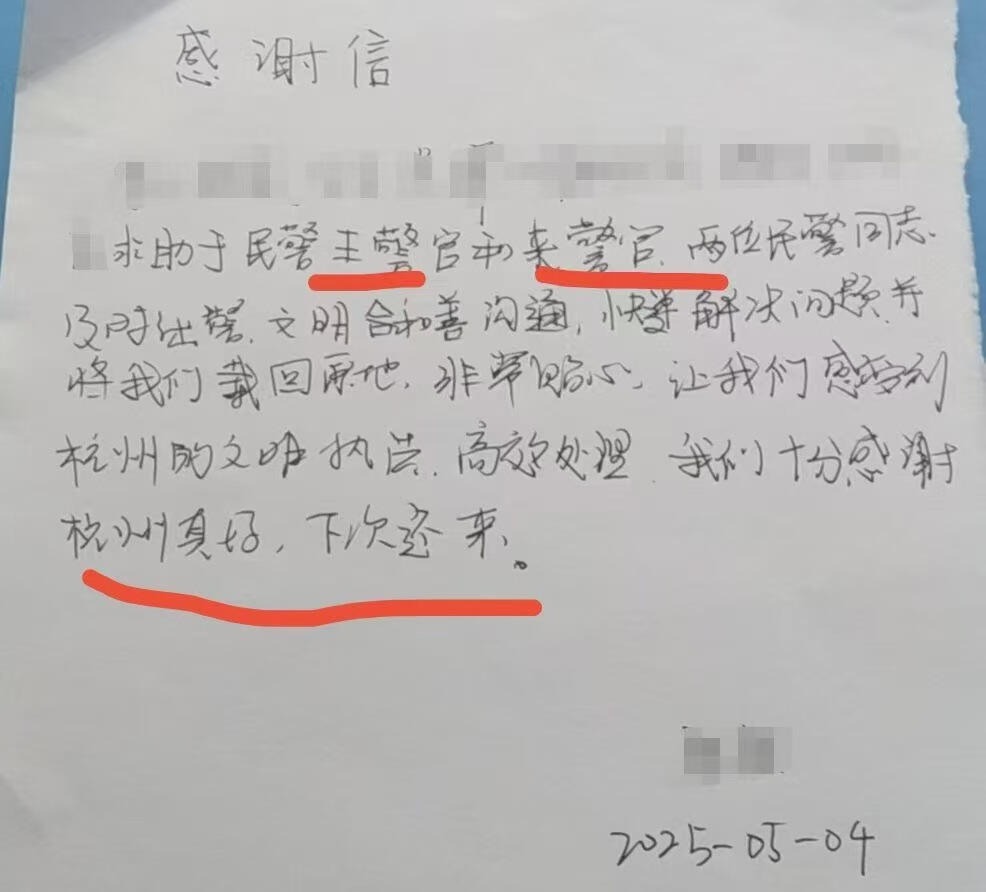 感谢信
求助于民警王警官和来警官.两位民警同志.
及时出警.文明和善沟通,快等解决问题.并
将我们载回原地.非常贴心.让我们感受到
杭州的文明执法.高效处理.我们十分感谢
杭州真好,下次还来。
2025-05-04